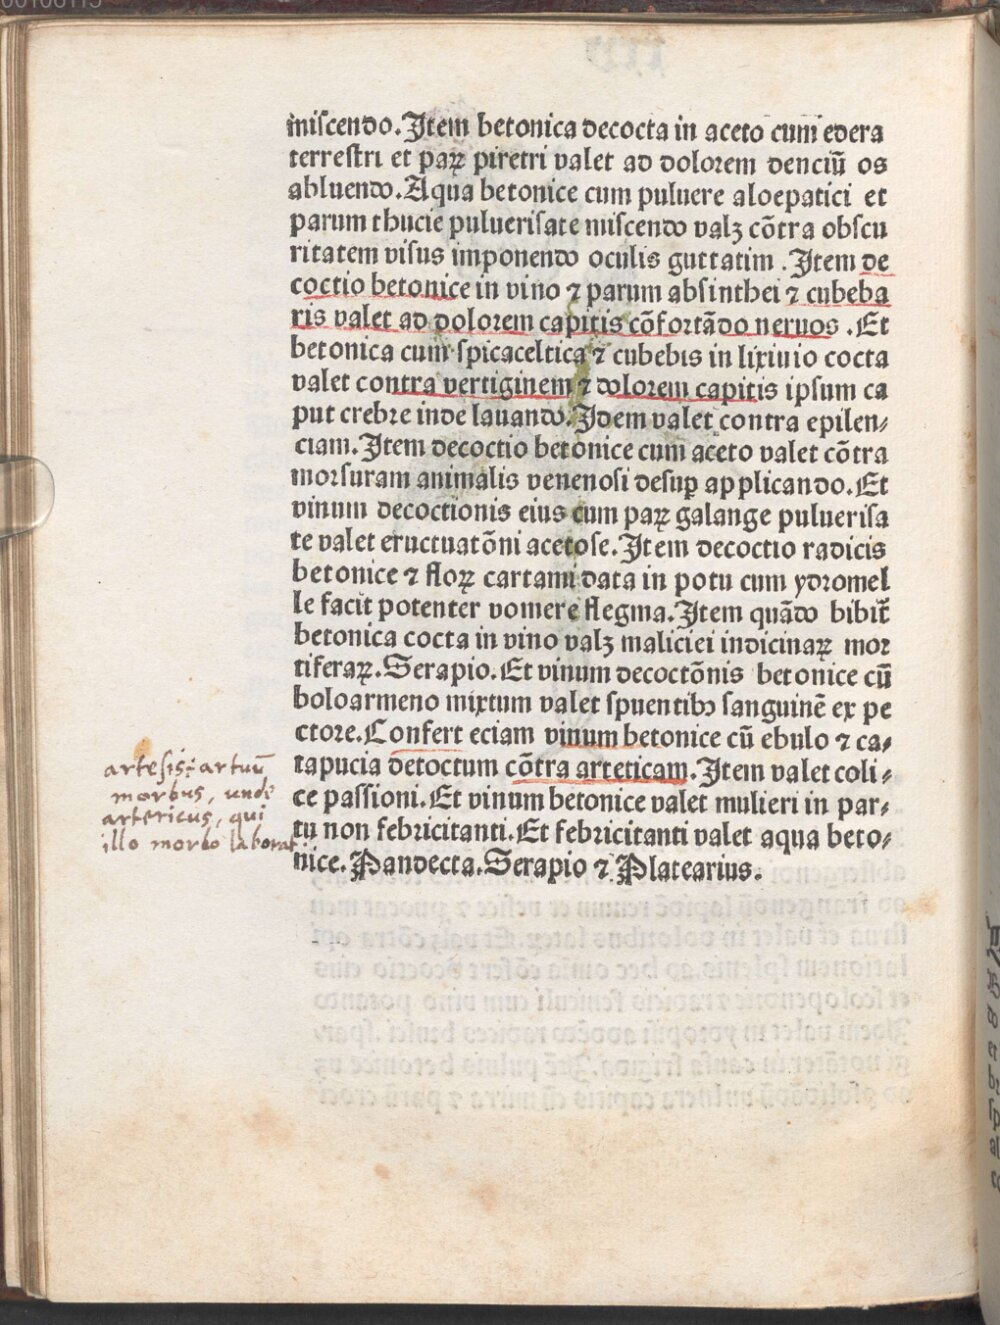 miscendo. Item betonica decocta in aceto cum edera
terrestri et paꝝ piretri valet ad dolorem denciū os
abluendo. Aqua betonice cum puluere aloepatici et
parum thucie puluerisate miscendo valꝫ cōtra obscu
ritatem visus imponendo oculis guttatim . Item de
coctio betonice in vino ⁊ parum absinthei ⁊ cubeba
ris valet ad dolorem capitis cōfortādo neruos . Et
betonica cum spicaceltica ⁊ cubebis in lixiuio cocta
valet contra vertiginem ⁊ dolorem capitis ipsum ca
put crebre inde lauando. Idem valet contra epilen⸗
ciam. Item decoctio betonice cum aceto valet cōtra
morsuram animalis venenosi desuꝑ applicando. Et
vinum decoctionis eius cum paꝝ galange puluerisa
te valet eructuatōni acetose. Item decoctio radicis
betonice ⁊ floꝝ cartami data in potu cum ydromel
le facit potenter vomere flegma. Item quādo bibit̄
betonica cocta in vino valꝫ maliciei indicinaꝝ mor
tiferaꝝ. Serapio. Et vinum decoctōnis betonice cū
boloarmeno mixtum valet spuentibꝰ sanguinē ex pe
ctore. Confert eciam vinum betonice cū ebulo ⁊ ca⸗
tapucia detoctum cōtra arteticam. Item valet coli⸗
ce passioni. Et vinum betonice valet mulieri in par⸗
tu non febricitanti. Et febricitanti valet aqua beto⸗
nice. Pandecta. Serapio ⁊ Platearius.
artesis: artuū
morbus, unde
artericus, qui
illo morbo laborat.